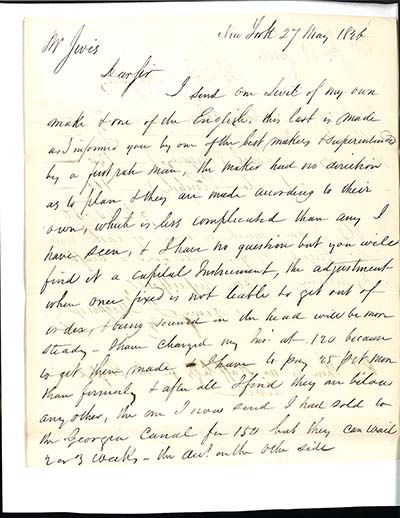 New York 27 May 1826
Mr Jivis
Dear Sir
I send one Level of my own
make & one of the English, this last is made
as I informed you by one of the best makers & superintended
by a first rate man, the maker had no direction
as to plan & they are made according to their
own, which is less complicated than any I
have seen, & I have no question but you will
find it a capital Instrument, the adjustment
when once fixed is not liable to get out of
order, & being secured in the head will be more
steady - I have charged my price at 120 because
to get them made - I have to pay 25 pct more
than formerly & after all I find they are below
any other, the one I now send I had sold to
the Georgia Canal for 150 but they can wait
2 or 3 weeks - the acct. on the other side